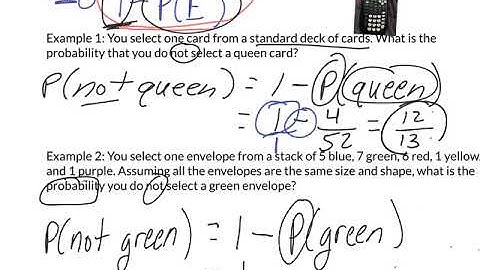 1 - P(E)
Example 1: You select one card from a standard deck of cards. What is the
probability that you do not select a queen card?
P(not queen) = 1 - P(queen)
= 1/1 - 4/52 = 12/13
Example 2: You select one envelope from a stack of 5 blue, 7 green, 6 red, 1 yellow,
and 1 purple. Assuming all the envelopes are the same size and shape, what is the
probability you do not select a green envelope?
P(not green) = 1 - P(green)